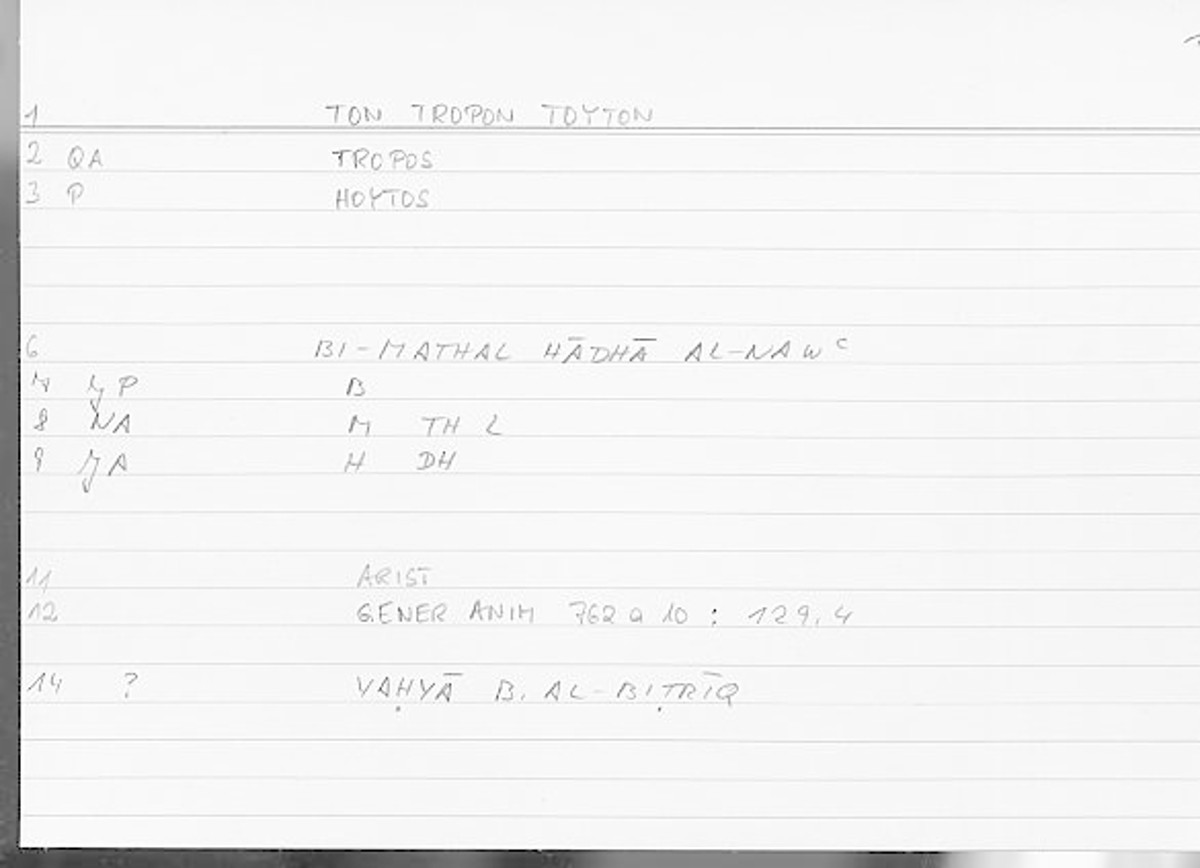 1 TON TROPON TOYTON
2 QA TROPOS
3 P HOYTOS
6 BI-MATHAL HĀDHĀ AL-NAWᶜ
7 P B
8 NA M TH L
9 A H DH
11 ARIST
12 GENER ANIM 762 a 10 : 129,4
14 ? YAḤYĀ B. AL-BIṬRĪQ